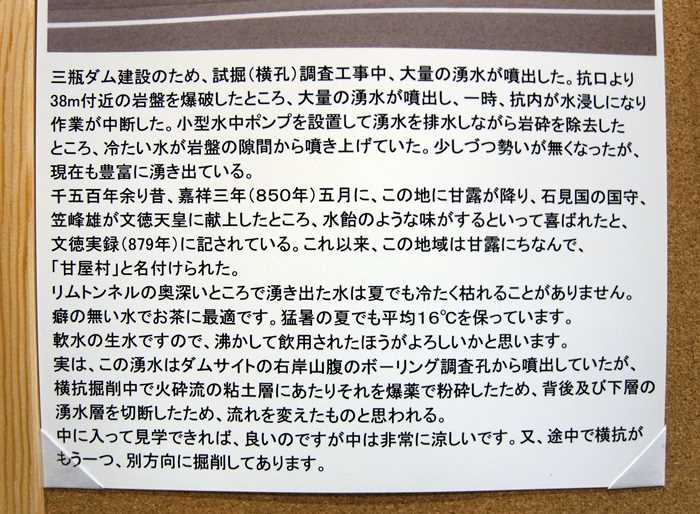 三瓶ダム建設のため、試掘(横孔)調査工事中、大量の湧水が噴出した。抗口より
38m付近の岩盤を爆破したところ、大量の湧水が噴出し、一時、抗内が水浸しになり
作業が中断した。小型水中ポンプを設置して湧水を排水しながら岩砕を除去した
ところ、冷たい水が岩盤の隙間から噴き上げていた。少しづつ勢いが無くなったが、
現在も豊富に湧き出ている。
千五百年余り昔、嘉祥三年(850年)五月に、この地に甘露が降り、石見国の国守、
笠峰雄が文徳天皇に献上したところ、水飴のような味がするといって喜ばれたと、
文徳実録(879年)に記されている。これ以来、この地域は甘露にちなんで、
「甘屋村」と名付けられた。
リムトンネルの奥深いところで湧き出た水は夏でも冷たく枯れることがありません。
癖の無い水でお茶に最適です。猛暑の夏でも平均16℃を保っています。
軟水の生水ですので、沸かして飲用されたほうがよろしいかと思います。
実は、この湧水はダムサイトの右岸山腹のボーリング調査孔から噴出していたが、
横抗掘削中で火砕流の粘土層にあたりそれを爆薬で粉砕したため、背後及び下層の
湧水層を切断したため、流れを変えたものと思われる。
中に入って見学できれば、良いのですが中は非常に涼しいです。又、途中で横抗が
もう一つ、別方向に掘削してあります。